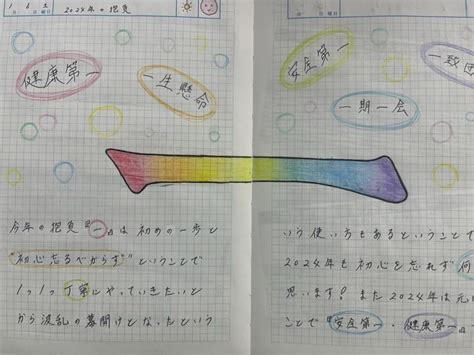 1 6 土 2024年の抱負
健康第一
一生懸命
今年の抱負『一』は初めの一歩と
"初心忘るべからず"ということで
1つ1つ丁寧にやっていきたいと
から波乱の幕開けとなったという
安全第一
一致団
一期一会
いう使い方もあるということで
2024年も初心を忘れず何
思います!また2024年は元
ことで『安全第一・健康第一